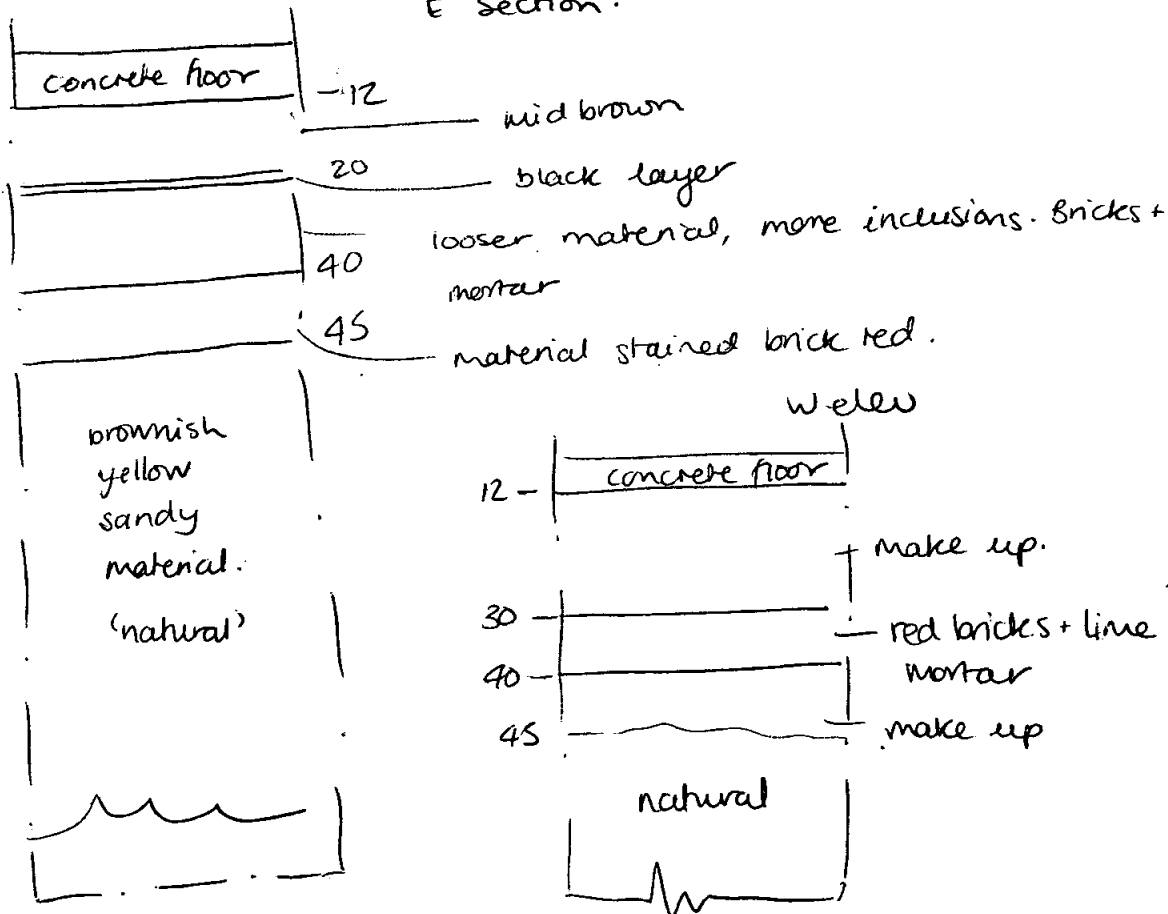 E section.
concrete floor
-12
mid brown
20
black layer
looser material, more inclusions. Bricks +
mortar
40
45
material stained brick red.
brownish
yellow
sandy
material.
'natural'
W elev
concrete floor
12 -
make up.
30
red bricks + lime
mortar
40
45
make up
natural